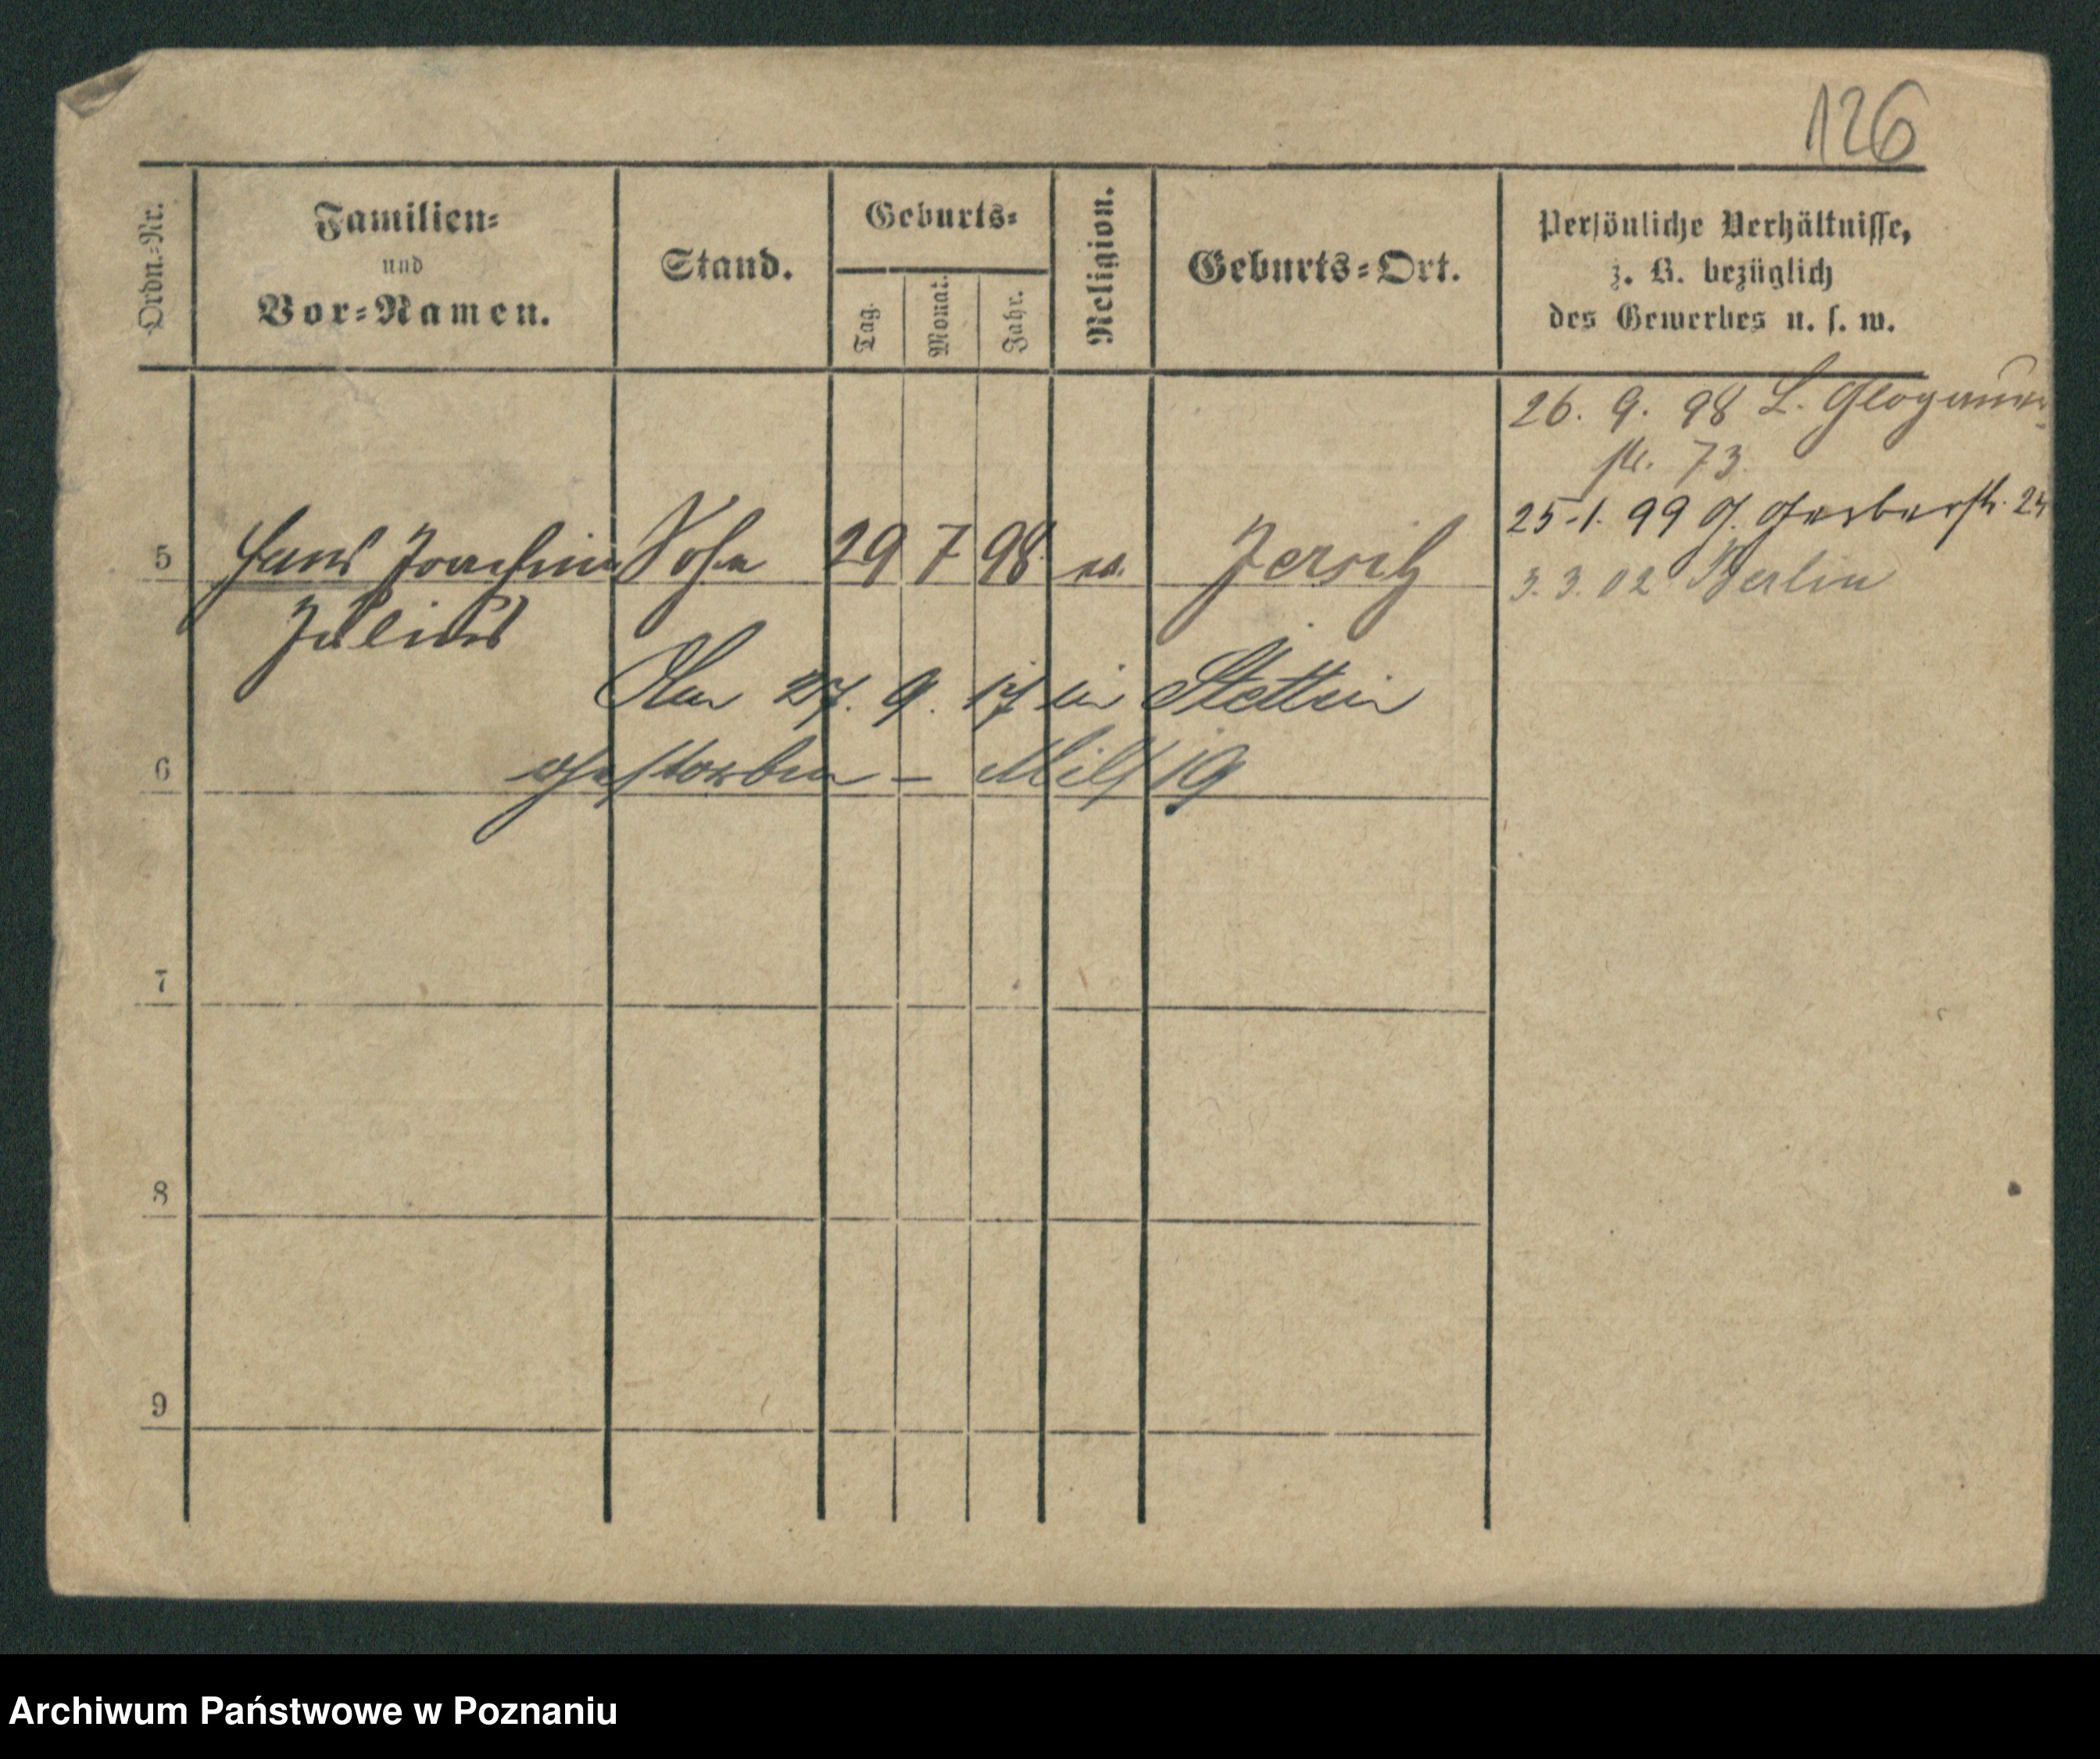 126
Ordn.-Nr.
Familien-
und
Vor-Namen.
Stand.
Geburts-
Tag.
Monat.
Jahr.
Religion.
Geburts-Ort.
Persönliche Verhältnisse,
z. B. bezüglich
des Gewerbes u. s. w.
26. 9. 98 L. Glogauer
str. 73
25.1. 99 G. Gerberstr.
3. 3. 02 Berlin
5 Hans Joachim Sohn 29 7 98 Jersitz
Julius
Am 27. 9. 17 in Stettin
6 gestorben –
7
8
9
Archiwum Państwowe w Poznaniu